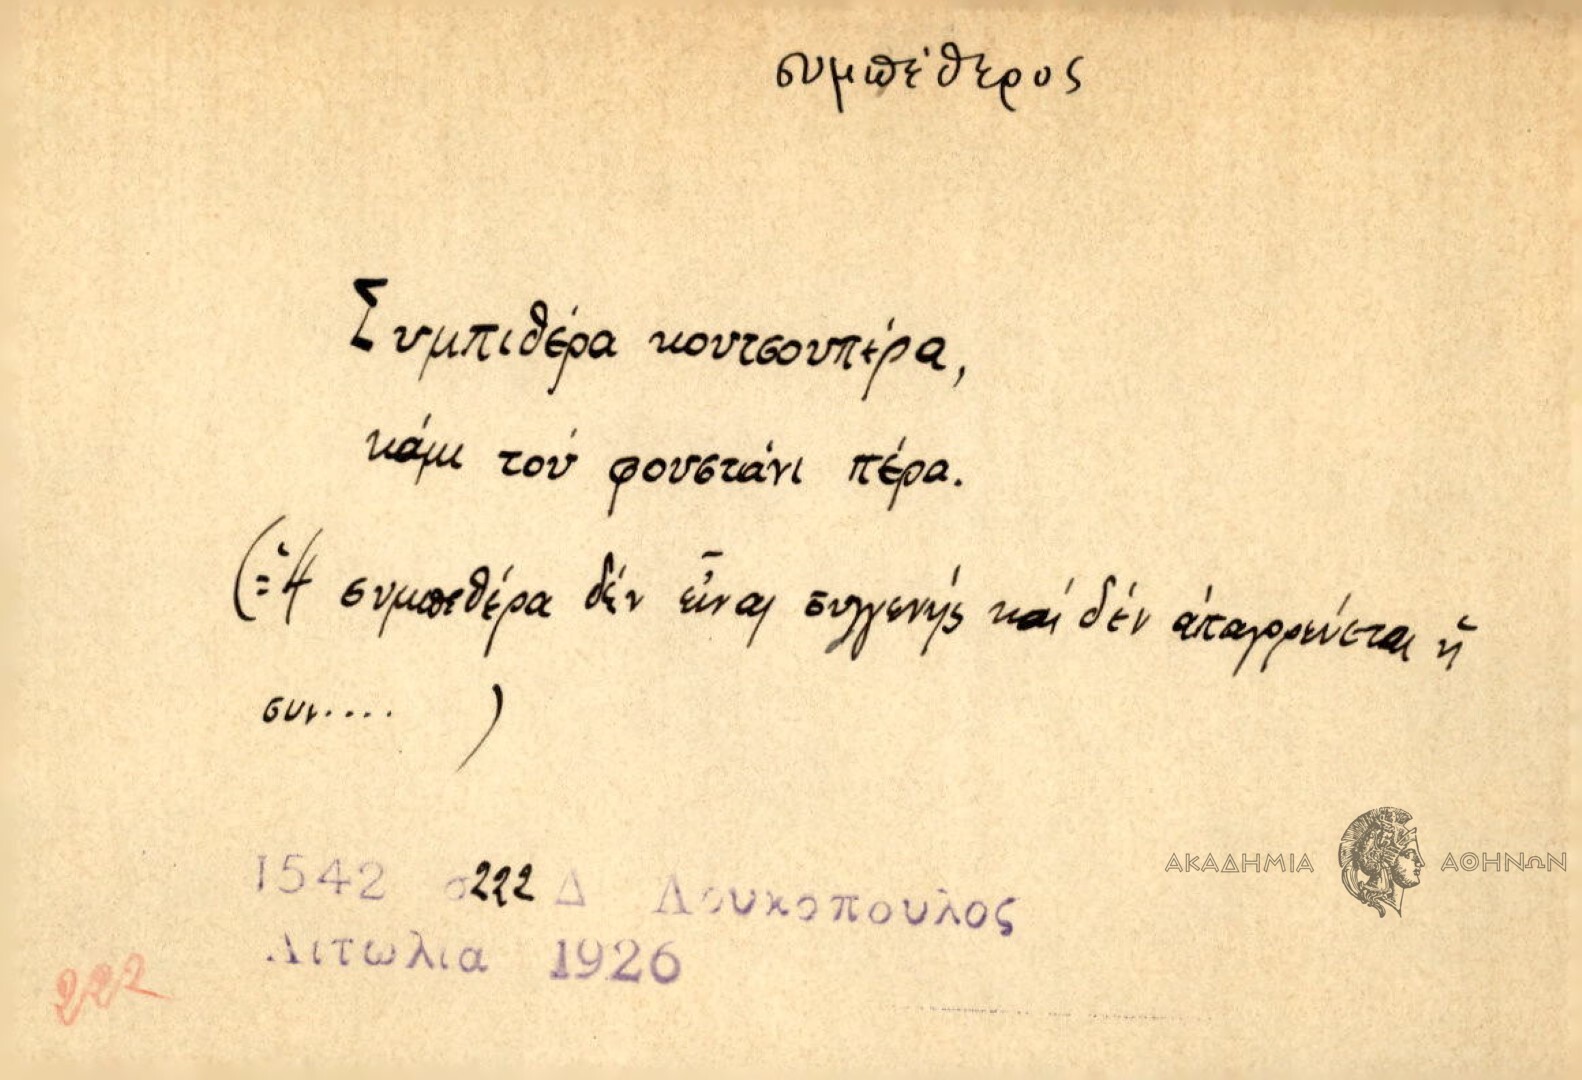 συμπέθερος
Συμπιθέρα κουτσουπέρα,
κάμι τού φουστάνι πέρα.
(=Ἡ συμπεθέρα δέν εἶναι συγγενής καί δέν ἀπαγορεύεται ἡ
συν.... )
1542 σ222 Δ Λουκοπουλος
Αιτωλια 1926
222
ΑΚΑΔΗΜΙΑ ΑΘΗΝΩΝ